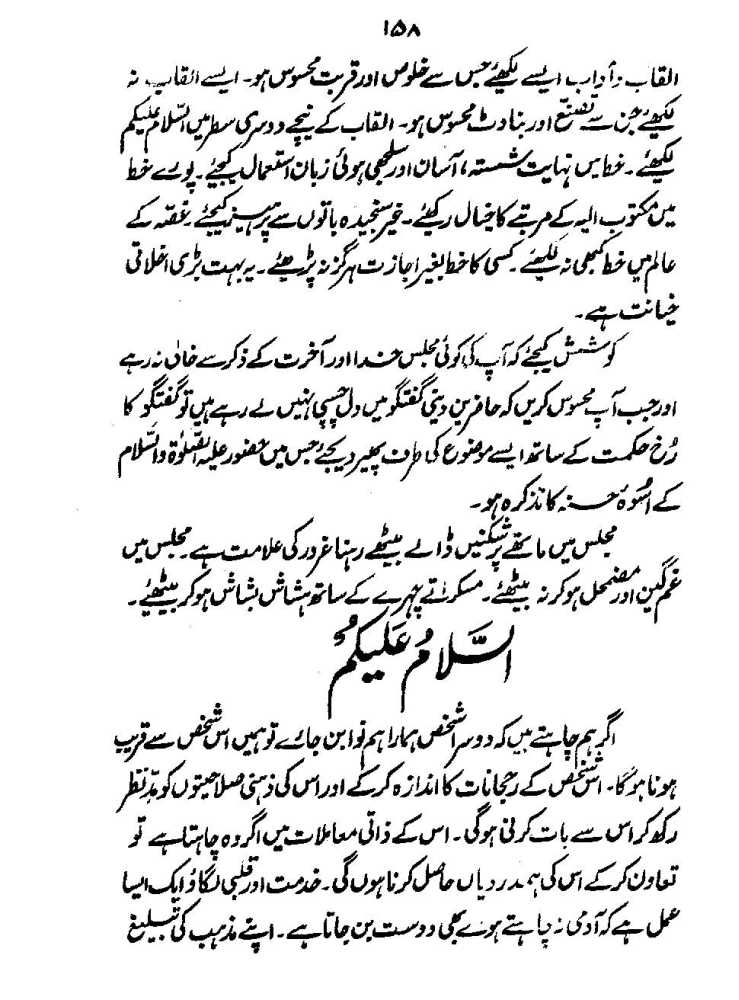 ۱۵۸
القاب و آداب ایسے لکھئے جس سے خلوص اور قربت محسوس ہو۔ ایسے القاب نہ
لکھئے جن سے تصنّع اور بناوٹ محسوس ہو۔ القاب کے نیچے دوسری سطر میں السّلام علیکم
لکھئے۔ خط میں نہایت شستہ، آسان اور سلجھی ہوئی زبان استعمال کیجئے۔ پورے خط
میں مکتوب الیہ کے مرتبے کا خیال رکھئے۔ غیر سنجیدہ باتوں سے پرہیز کیجئے۔ غصّہ کے
عالم میں خط کبھی نہ لکھئے۔ کسی کا خط بغیر اجازت ہرگز نہ پڑھئے۔ یہ بہت بڑی اخلاقی
خیانت ہے۔
کوشش کیجئے کہ آپ کی کوئی مجلس خدا اور آخرت کے ذکر سے خالی نہ رہے
اور جب آپ محسوس کریں کہ حاضرین دینی گفتگو میں دل چسپی نہیں لے رہے ہیں تو گفتگو کا
رُخ حکمت کے ساتھ ایسے موضوع کی طرف پھیر دیجئے جس میں حضور علیہ الصّلوٰۃ والسّلام
کے اُسوۂ حسنہ کا تذکرہ ہو۔
مجلس میں ماتھے پر شکنیں ڈالے بیٹھے رہنا غرور کی علامت ہے۔ مجلس میں
غم گین اور مضمحل ہو کر نہ بیٹھئے۔ مسکراتے چہرے کے ساتھ ہشاش بشاش ہو کر بیٹھیئے۔
السَّلامُ عَلَیکُمْ
اگر ہم چاہتے ہیں کہ دوسرا شخص ہمارا ہم نوا بن جائے تو ہمیں اس شخص سے قریب
ہونا ہوگا۔ اس شخص کے رجحانات کا اندازہ کر کے اور اس کی ذہنی صلاحیتوں کو مدِّ نظر
رکھ کر اس سے بات کرنی ہوگی۔ اس کے ذاتی معاملات میں اگر وہ چاہتا ہے تو
تعاون کر کے اس کی ہمدردیاں حاصل کرنا ہوں گی۔ خدمت اور قلبی لگاؤ ایک ایسا
عمل ہے کہ آدمی نہ چاہتے ہوئے بھی دوست بن جاتا ہے۔ اپنے مذہب کی تبلیغ